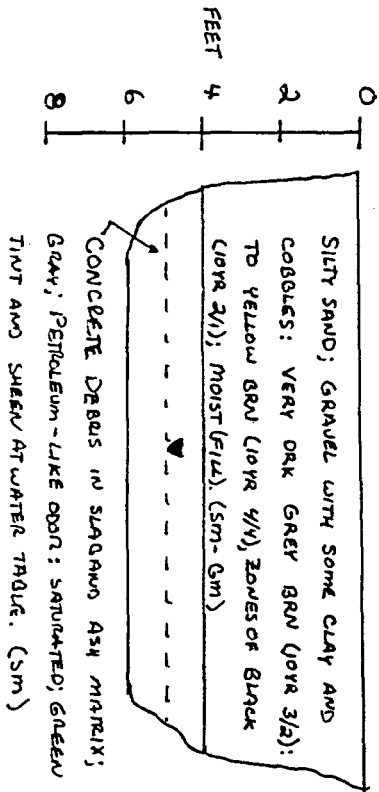 FEET
0
2
4
6
8
SILTY SAND; GRAVEL WITH SOME CLAY AND
COBBLES: VERY DRK GREY BRN (10YR 3/2):
TO YELLOW BRN (10YR 4/4), ZONES OF BLACK
(10YR 2/1); MOIST (FILL). (SM-GM)
CONCRETE DEBRIS IN SLAG AND ASH MATRIX;
GRAY; PETROLEUM-LIKE ODOR: SATURATED; GREEN
TINT AND SHEEN AT WATER TABLE. (SM)